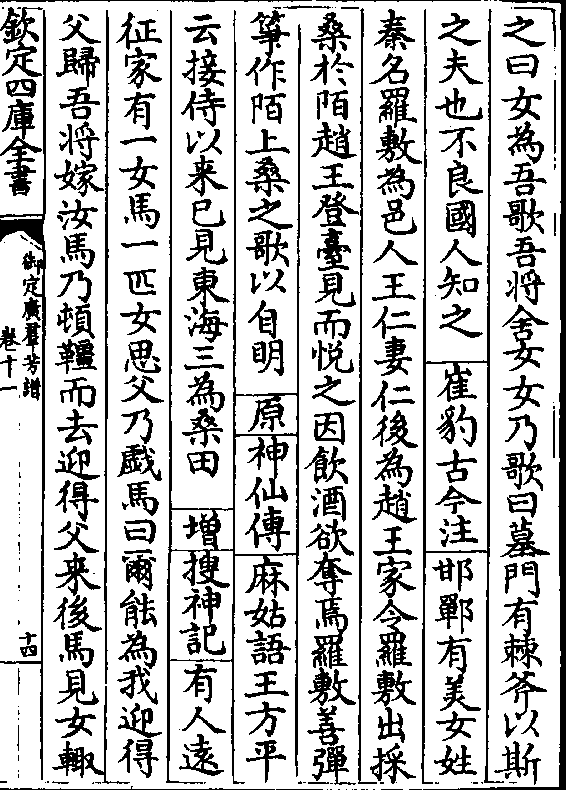 之曰女為吾歌吾将舍女女乃歌曰墓門有棘斧以斯
之夫也不良國人知之 崔豹古今注 邯鄲有美女姓
秦名羅敷為邑人王仁妻仁後為趙王家令羅敷出採
桑於陌趙王登臺見而悦之因飲酒欲奪焉羅敷善彈
箏作陌上桑之歌以自明 原 神仙傳 麻姑語王方平
云接侍以来已見東海三為桑田 增 搜神記 有人遠
征家有一女馬一匹女思父乃戯馬曰爾能為我迎得
父歸吾将嫁汝馬乃頓韁而去迎得父来後馬見女輙
欽定四庫全書
御定廣羣芳譜
卷十一
十四